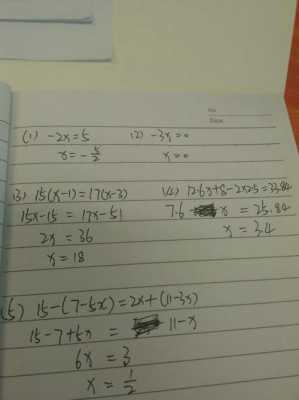 No.
Date
(1) -2x=5 (2) -3x=0
x=-5/2 x=0
(3) 15(x-1)=17(x-3) (4) 12.6x+8-2x2.5=33.84
15x-15=17x-51 7.6 x = 25.84
2x = 36 x = 3.4
x = 18
(5) 15-(7-5x)=2x+(11-3x)
15-7+5x = 11-x
6x = 3
x = 1/2